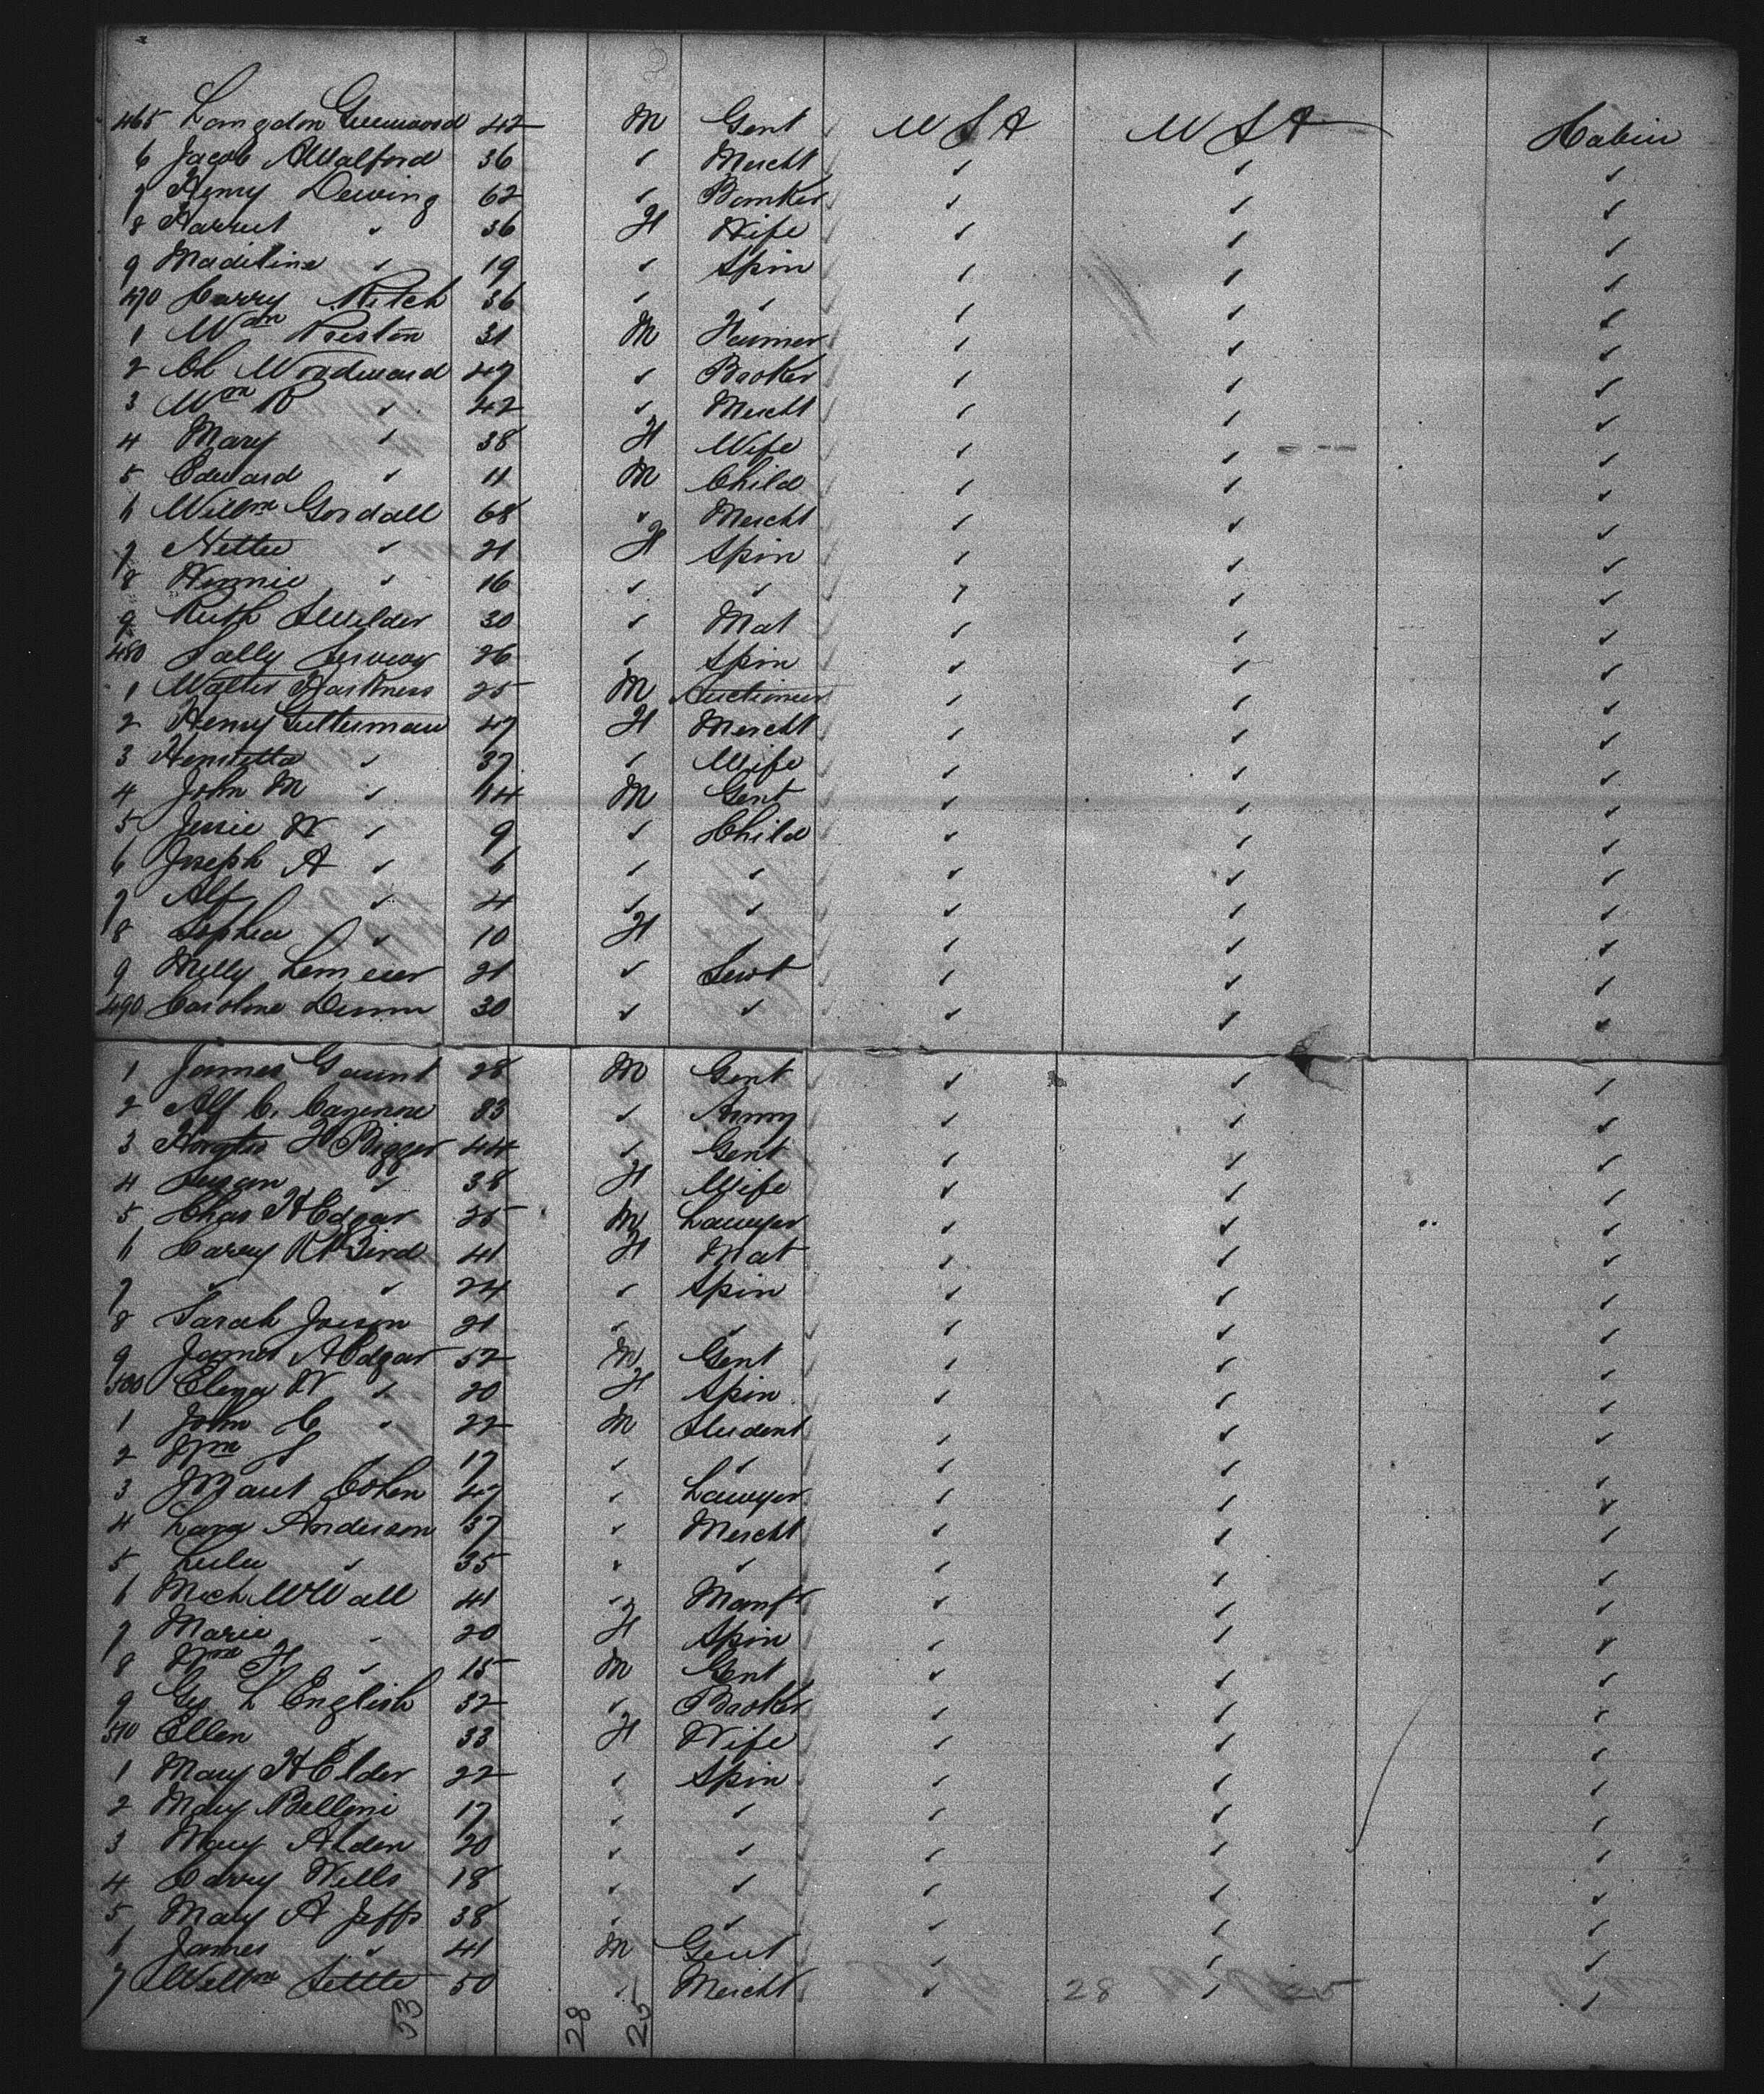 465 Langdon Greenwood 42 M Gent U S A U S A Cabin
6 Jacob A Walford 36 ✓ Mercht ✓ ✓ ✓
7 Henry Dewing 62 ✓ Banker ✓ ✓ ✓
8 Harriet ✓ 36 F Wife ✓ ✓ ✓
9 Madeline ✓ 19 ✓ Spin ✓ ✓ ✓
470 Carry Mitch 36 ✓ ✓ ✓ ✓ ✓
1 Wm Preston 31 M Farmer ✓ ✓ ✓
2 Ch Woodward 47 ✓ Broker ✓ ✓ ✓
3 Wm R ✓ 42 ✓ Mercht ✓ ✓ ✓
4 Mary ✓ 38 F Wife ✓ ✓ ✓
5 Edward ✓ 11 M Child ✓ ✓ ✓
6 Willm Gordall 68 ✓ Mercht ✓ ✓ ✓
7 Nettie ✓ 21 F Spin ✓ ✓ ✓
8 Winnie ✓ 16 ✓ ✓ ✓ ✓ ✓
9 Ruth S Wilder 30 ✓ Mat ✓ ✓ ✓
480 Sally 26 ✓ Spin ✓ ✓ ✓
1 Walter Harkness 25 M Auctioneer ✓ ✓ ✓
2 Henry Gutterman 47 F Mercht ✓ ✓ ✓
3 Henrietta ✓ 37 ✓ Wife ✓ ✓ ✓
4 John M ✓ 14 M Gent ✓ ✓ ✓
5 Jessie W ✓ 9 ✓ Child ✓ ✓ ✓
6 Joseph A ✓ 6 ✓ ✓ ✓ ✓ ✓
7 Alf ✓ 4 ✓ ✓ ✓ ✓ ✓
8 Sophia ✓ 10 F ✓ ✓ ✓ ✓
9 Melly 21 ✓ Servt ✓ ✓ ✓
490 Caroline Dunn 30 ✓ ✓ ✓ ✓ ✓
1 James Gaunt 28 M Gent ✓ ✓ ✓
2 Alf C. 33 ✓ Army ✓ ✓ ✓
3 H Bigger 44 ✓ Gent ✓ ✓ ✓
4 Susan ✓ 38 F Wife ✓ ✓ ✓
5 Chas H Edgar 25 M Lawyer ✓ ✓ ✓
6 Carry R Bird 41 F Mat ✓ ✓ ✓
7 ✓ ✓ 24 ✓ Spin ✓ ✓ ✓
8 Sarah 21 ✓ ✓ ✓ ✓ ✓
9 James A Edgar 52 M Gent ✓ ✓ ✓
500 Eliza W ✓ 20 F Spin ✓ ✓ ✓
1 John C ✓ 22 M Student ✓ ✓ ✓
2 Wm S ✓ 17 ✓ ✓ ✓ ✓ ✓
3 Cohen 47 ✓ Lawyer ✓ ✓ ✓
4 Larz Anderson 37 ✓ Mercht ✓ ✓ ✓
5 Lulu ✓ 35 ✓ ✓ ✓ ✓ ✓
6 Mich W Wall 41 ✓ Manfr ✓ ✓ ✓
7 Marie ✓ 20 F Spin ✓ ✓ ✓
8 Wm H ✓ 15 M Gent ✓ ✓ ✓
9 Geo L English 32 ✓ Broker ✓ ✓ ✓
510 Ellen ✓ 33 F Wife ✓ ✓ ✓
1 Mary H Elder 22 ✓ Spin ✓ ✓ ✓
2 Mary Bellini 17 ✓ ✓ ✓ ✓ ✓
3 Mary Alden 20 ✓ ✓ ✓ ✓ ✓
4 Carry Wells 18 ✓ ✓ ✓ ✓ ✓
5 Mary A Jeffs 38 ✓ ✓ ✓ ✓ ✓
6 James ✓ 41 M Gent ✓ ✓ ✓
7 Willm Settle 50 ✓ Mercht ✓ 28 ✓ 25 ✓
53 28 25